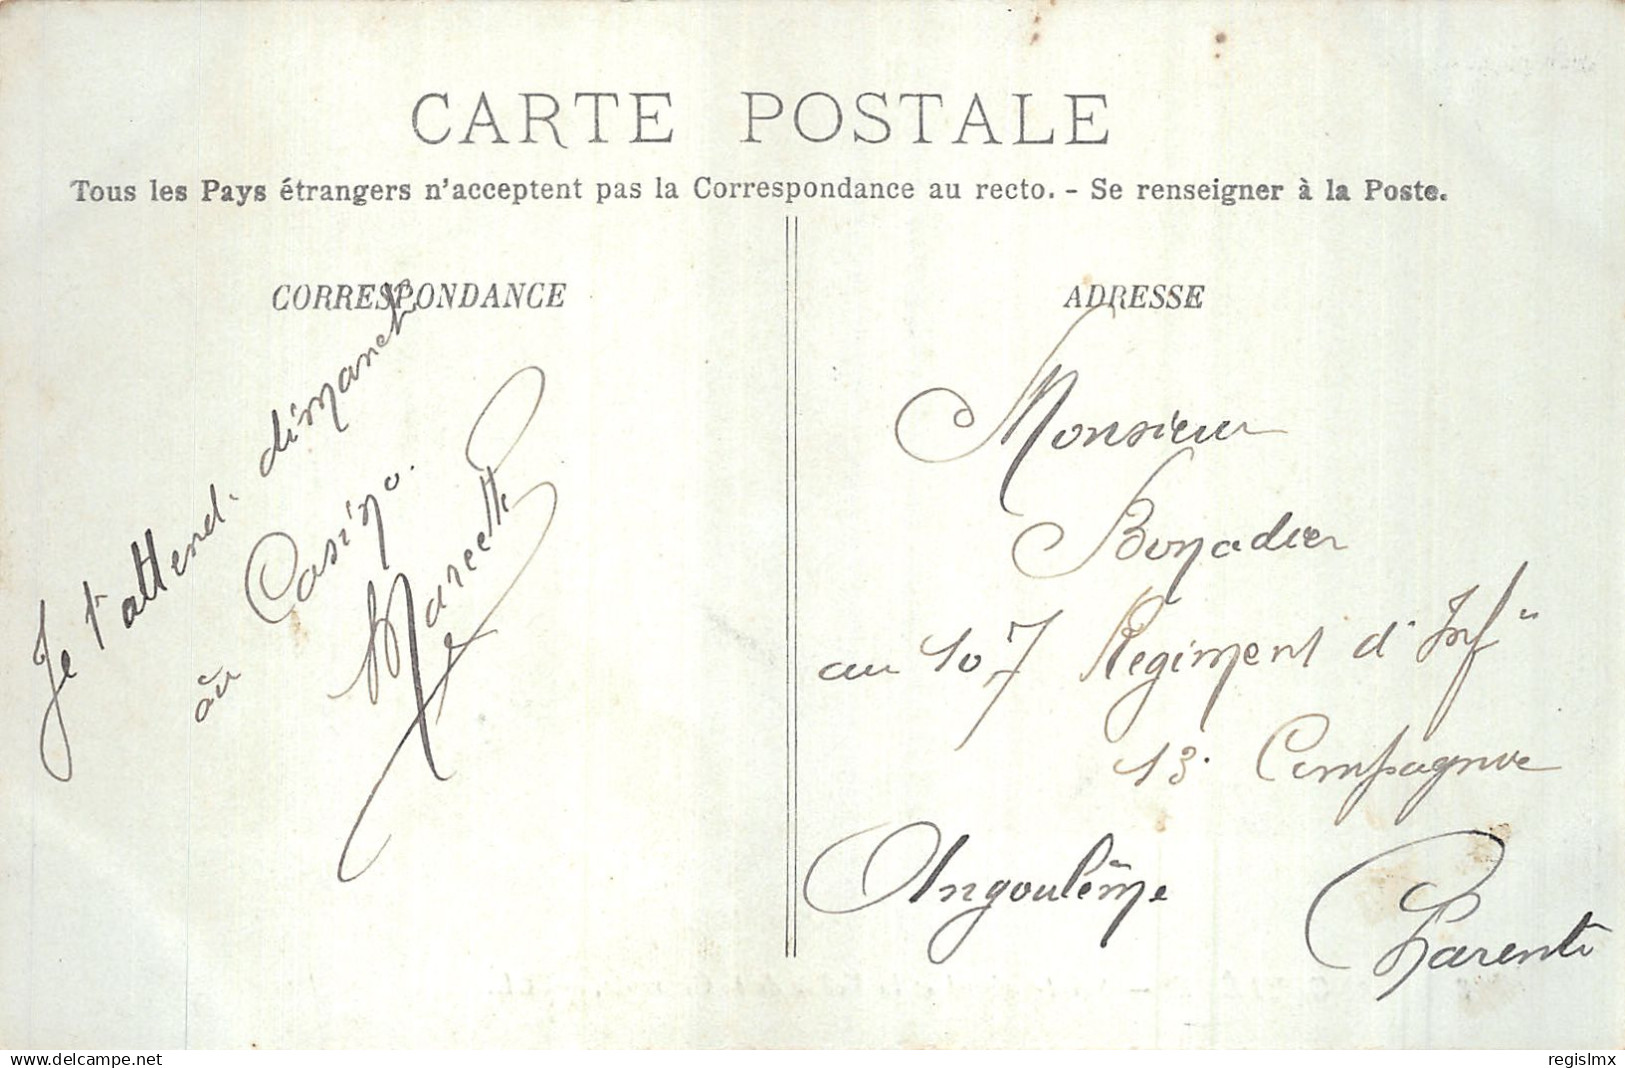 CARTE POSTALE
Tous les Pays étrangers n'acceptent pas la Correspondance au recto. - Se renseigner à la Poste.
CORRESPONDANCE
Je t'attend. dimanche
au Casino.
Marcelle
ADRESSE
Monsieur
Bonadier
au 107 Regiment d'Inf
13. Compagnie
Angoulême
Charente
www.delcampe.net
regislmx